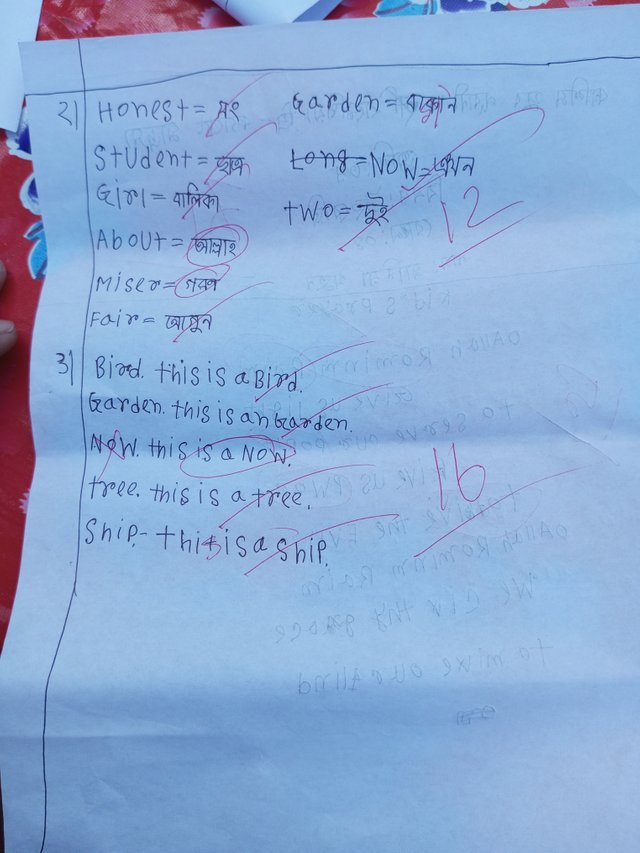 ২| Honest = সৎ
Student = ছাত্র
Girl = বালিকা
About = আল্লাহ
Miser =
Fair = আগুন
Garden = বাগান
Long = NOW = এখন
two = দুই
12
৩| Bird. this is a Bird.
Garden. this is an Garden.
NOW. this is a NOW.
tree. this is a tree.
Ship.- this is a Ship.
16